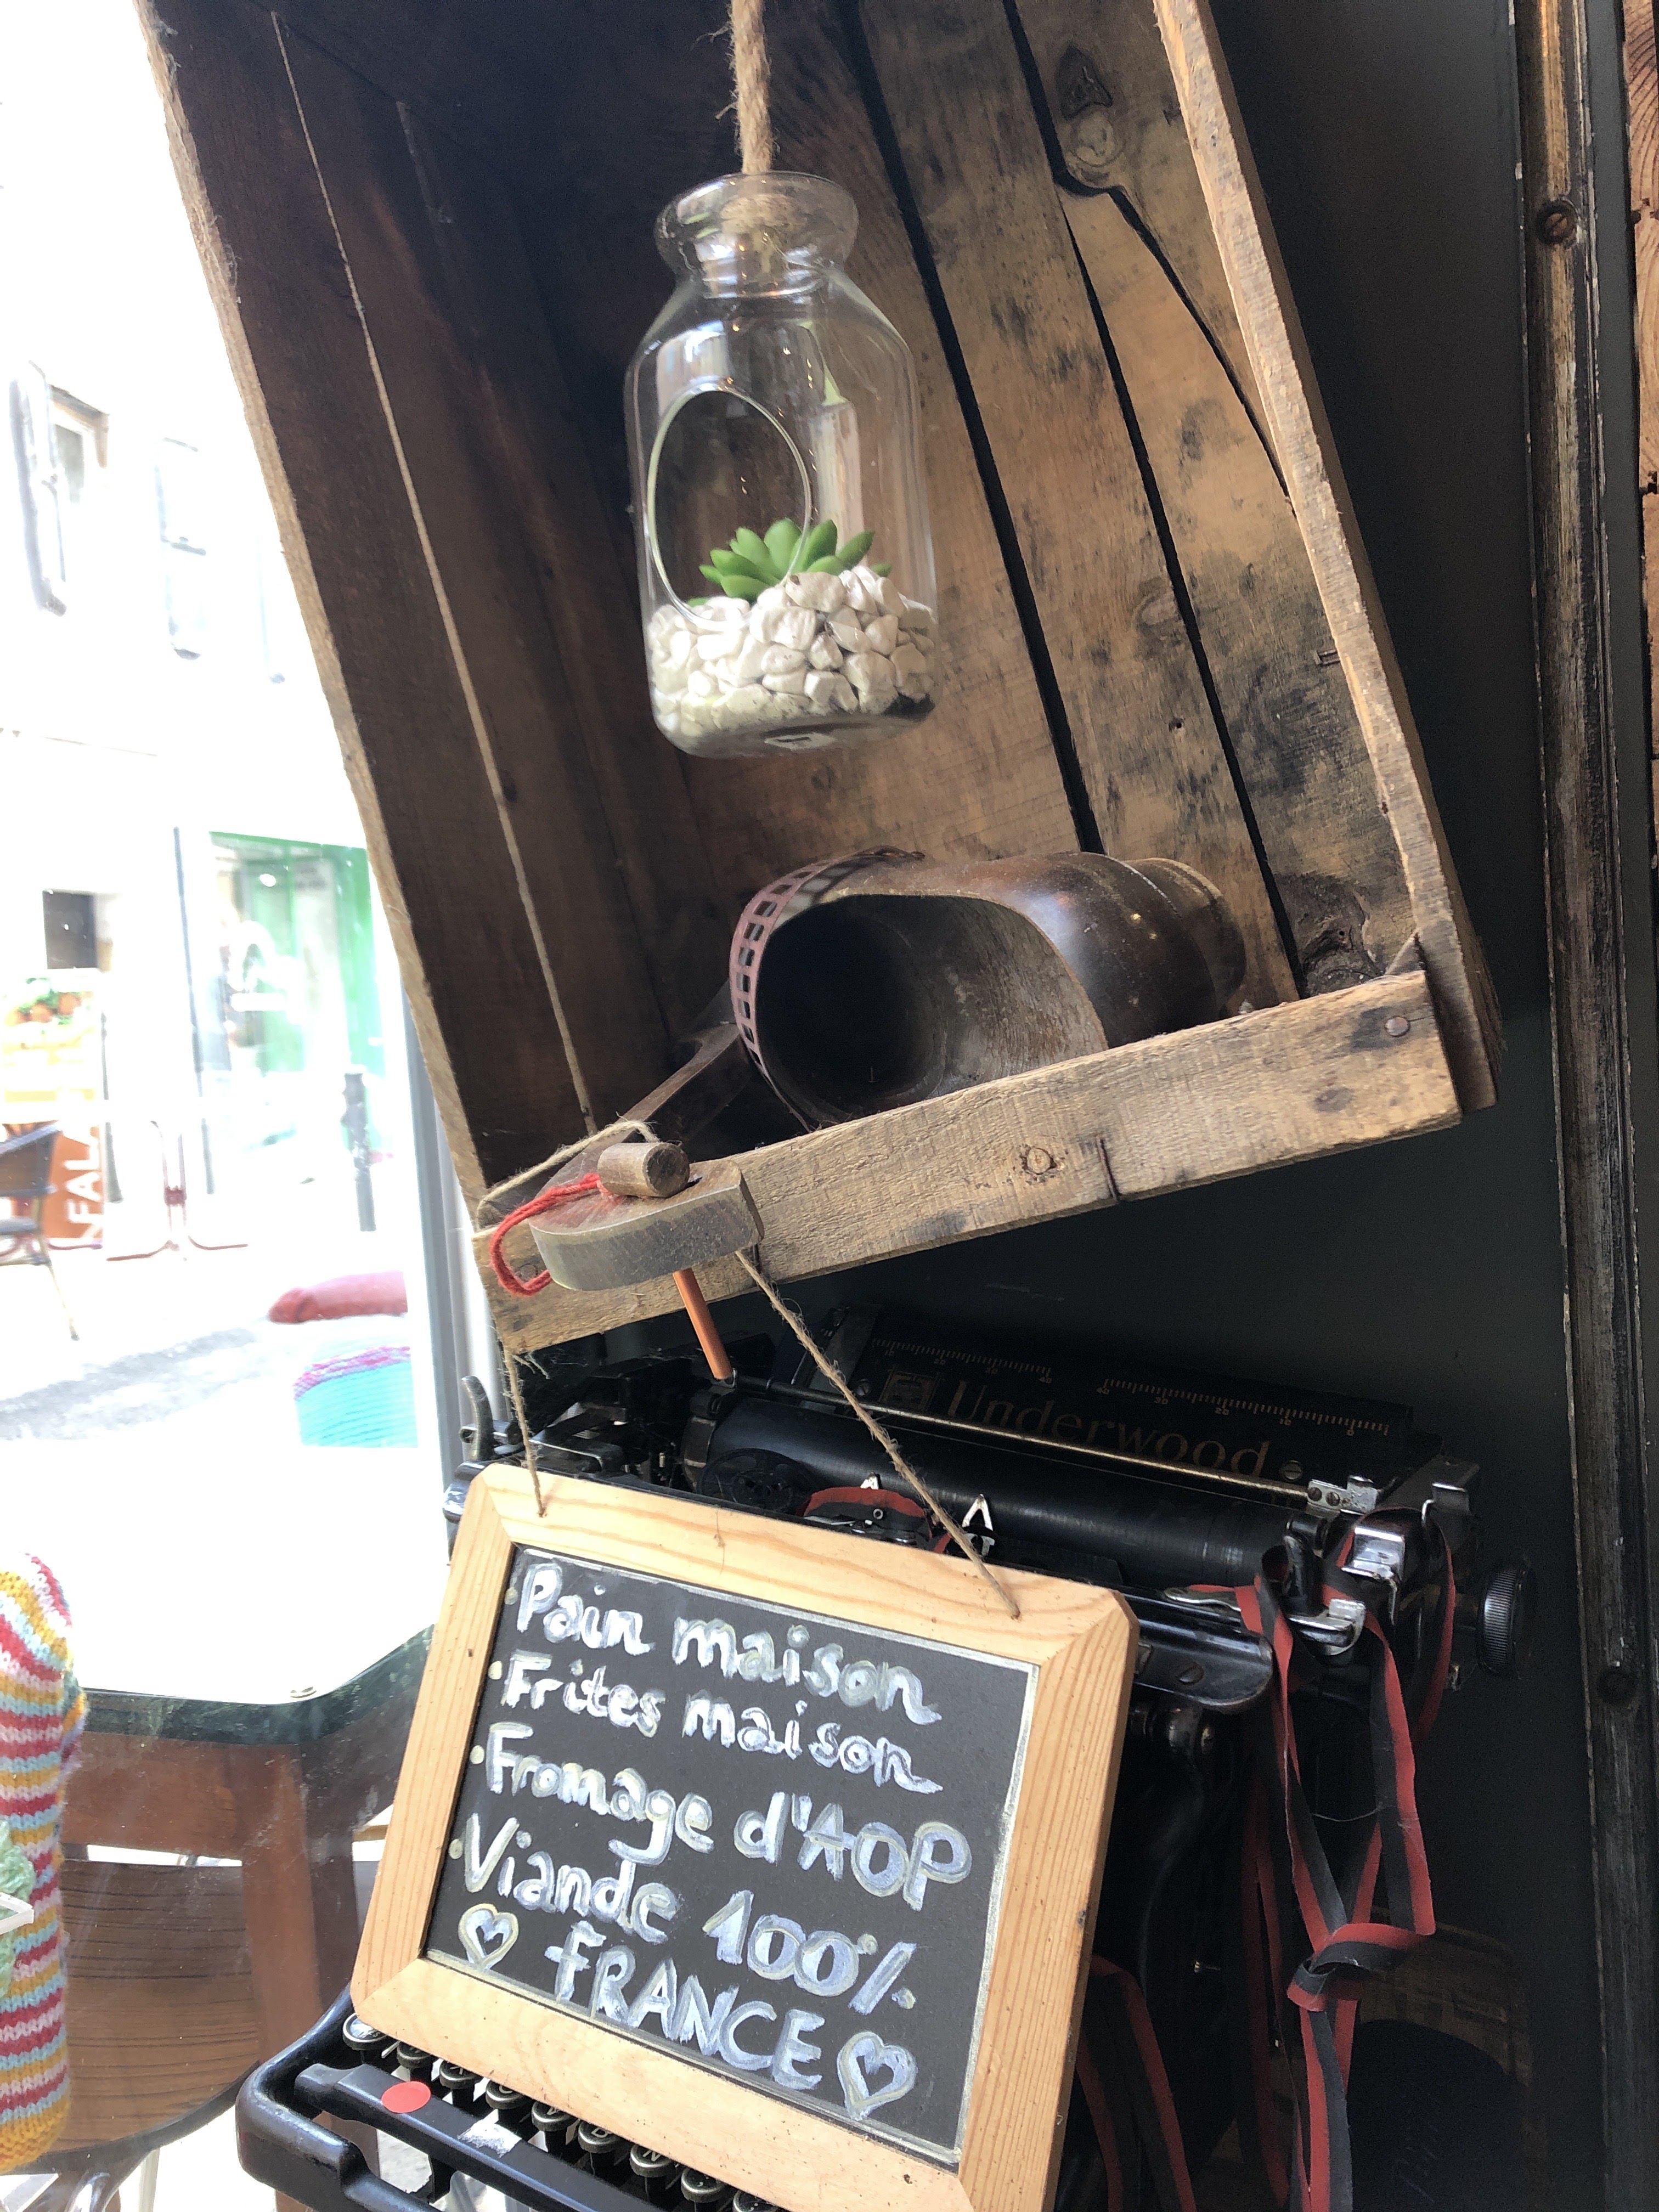 Underwood
• Pain maison
• Frites maison
• Fromage d'AOP
• Viande 100%
♡ FRANCE ♡